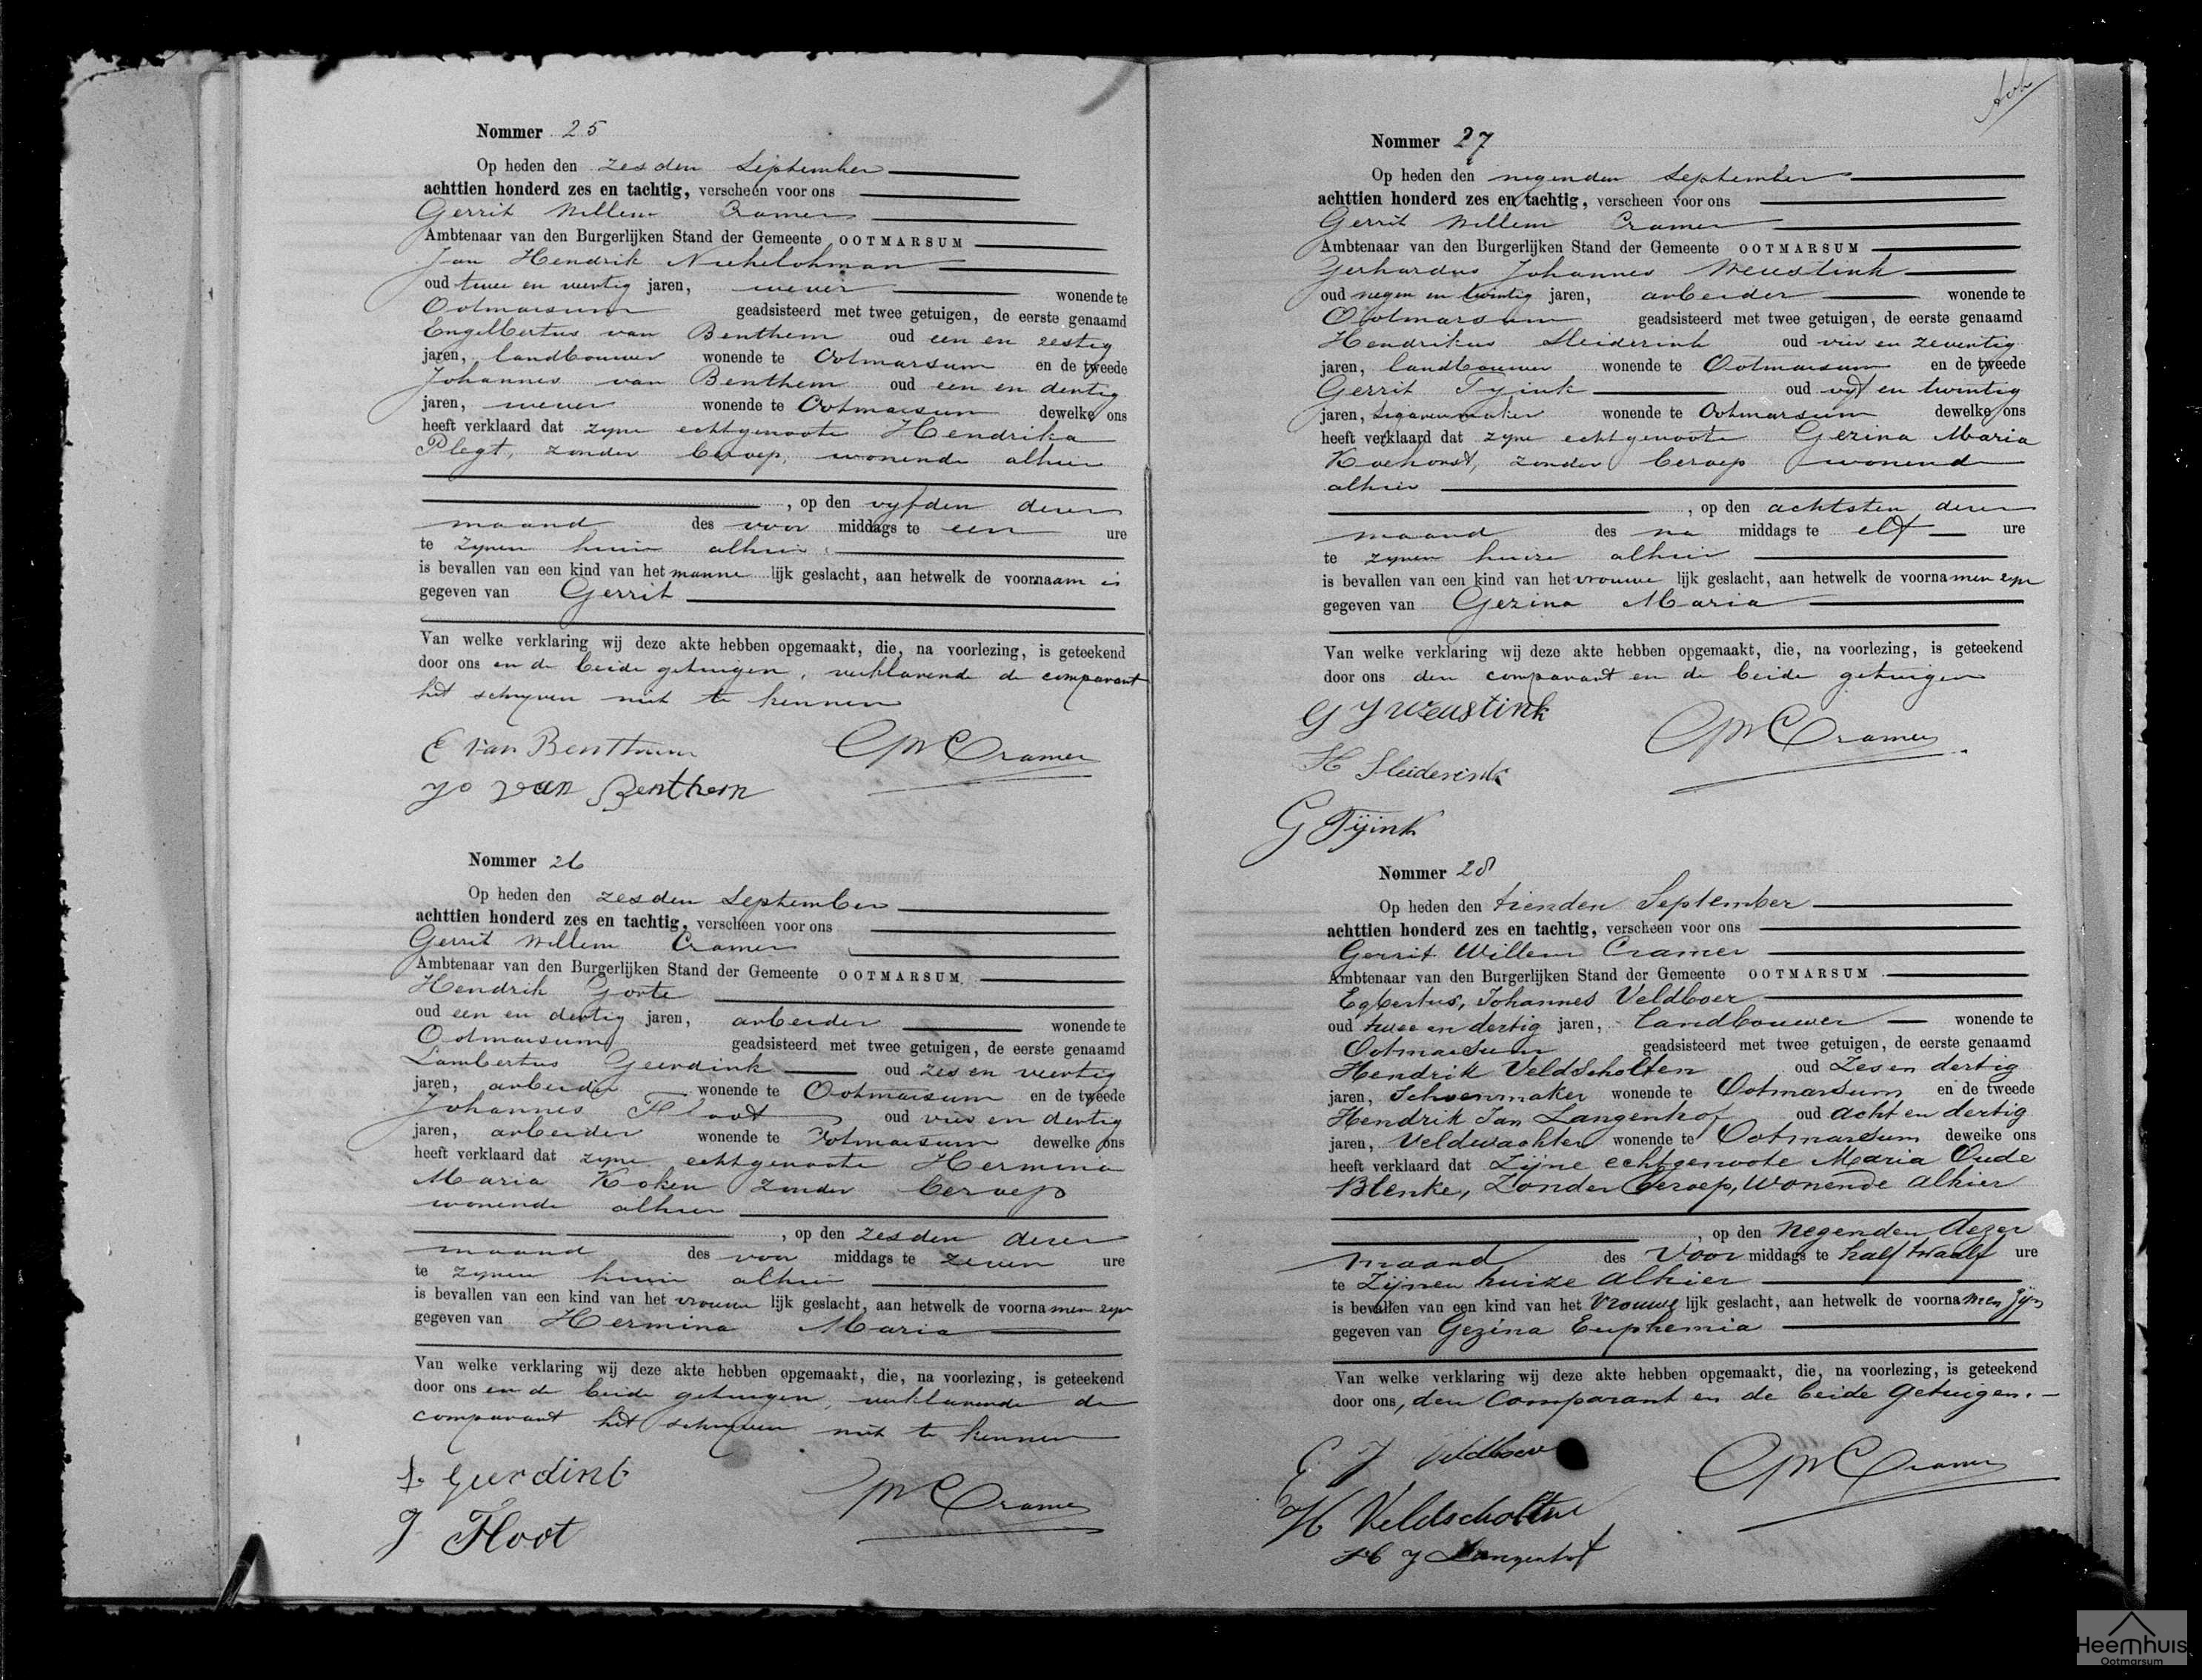 Nommer 25
Op heden den zesden September
achttien honderd zes en tachtig, verscheen voor ons
Gerrit Willem Cramer
Ambtenaar van den Burgerlijken Stand der Gemeente OOTMARSUM
Jan Hendrik
oud twee en veertig jaren, wever wonende te
Ootmarsum geadsisteerd met twee getuigen, de eerste genaamd
Engelbertus van Benthem oud een en zestig
jaren, landbouwer wonende te Ootmarsum en de tweede
Johannes van Benthem oud een en dertig
jaren, wever wonende te Ootmarsum dewelke ons
heeft verklaard dat zyne echtgenoote Hendrika
Plegt, zonder beroep, wonende alhier
, op den vyfden dezer
maand des voor middags te een ure
te zynen huize alhier
is bevallen van een kind van het manne lijk geslacht, aan hetwelk de voornaam is
gegeven van Gerrit
Van welke verklaring wij deze akte hebben opgemaakt, die, na voorlezing, is geteekend
door ons en de beide getuigen, verklarende de comparant
het schryven niet te kennen
E van Benthem GW Cramer
Jo van Benthem
Nommer 26
Op heden den zesden September
achttien honderd zes en tachtig, verscheen voor ons
Gerrit Willem Cramer
Ambtenaar van den Burgerlijken Stand der Gemeente OOTMARSUM
Hendrik Goote
oud een en dertig jaren, arbeider wonende te
Ootmarsum geadsisteerd met twee getuigen, de eerste genaamd
Lambertus Geerdink oud zes en veertig
jaren, arbeider wonende te Ootmarsum en de tweede
Johannes Floot oud vier en dertig
jaren, arbeider wonende te Ootmarsum dewelke ons
heeft verklaard dat zyne echtgenoote Hermina
Maria Koken zonder beroep
wonende alhier
, op den zesden dezer
maand des voor middags te zeven ure
te zynen huize alhier
is bevallen van een kind van het vrouwe lijk geslacht, aan hetwelk de voornamen zyn
gegeven van Hermina Maria
Van welke verklaring wij deze akte hebben opgemaakt, die, na voorlezing, is geteekend
door ons en de beide getuigen, verklarende de
comparant het schryven niet te kennen
L. Geerdink GW Cramer
J Floot
Nommer 27
Op heden den negenden September
achttien honderd zes en tachtig, verscheen voor ons
Gerrit Willem Cramer
Ambtenaar van den Burgerlijken Stand der Gemeente OOTMARSUM
Gerhardus Johannes Weustink
oud negen en twintig jaren, arbeider wonende te
Ootmarsum geadsisteerd met twee getuigen, de eerste genaamd
Hendrikus Sleiderink oud vier en zeventig
jaren, landbouwer wonende te Ootmarsum en de tweede
Gerrit Tyink oud vyf en twintig
jaren, sigarenmaker wonende te Ootmarsum dewelke ons
heeft verklaard dat zyne echtgenoote Gezina Maria
Koehorst, zonder beroep wonende
alhier
, op den achtsten dezer
maand des na middags te elf ure
te zynen huize alhier
is bevallen van een kind van het vrouwe lijk geslacht, aan hetwelk de voornamen zyn
gegeven van Gezina Maria
Van welke verklaring wij deze akte hebben opgemaakt, die, na voorlezing, is geteekend
door ons den comparant en de beide getuigen
G J Weustink
GW Cramer
H Sleiderink
G Tijink
Nommer 28
Op heden den tienden September
achttien honderd zes en tachtig, verscheen voor ons
Gerrit Willem Cramer
Ambtenaar van den Burgerlijken Stand der Gemeente OOTMARSUM
Egbertus, Johannes Veldboer
oud twee en dertig jaren, Landbouwer wonende te
Ootmarsum geadsisteerd met twee getuigen, de eerste genaamd
Hendrik Veldscholten oud Zes en dertig
jaren, Schoenmaker wonende te Ootmarsum en de tweede
Hendrik Jan Langenhof oud acht en dertig
jaren, Veldwachter wonende te Ootmarsum dewelke ons
heeft verklaard dat Zijne echtgenoote Maria Oude
Blenke, Zonder beroep, Wonende alhier
, op den negenden dezer
maand des Voor middags te half twaalf ure
te Zijnen huize alhier
is bevallen van een kind van het Vrouwe lijk geslacht, aan hetwelk de voornamen Zijn
gegeven van Gezina Euphemia
Van welke verklaring wij deze akte hebben opgemaakt, die, na voorlezing, is geteekend
door ons, den Comparant en de beide Getuigen.
E J Veldboer GW Cramer
H Veldscholten
H J Langenhof
Heemhuis
Ootmarsum